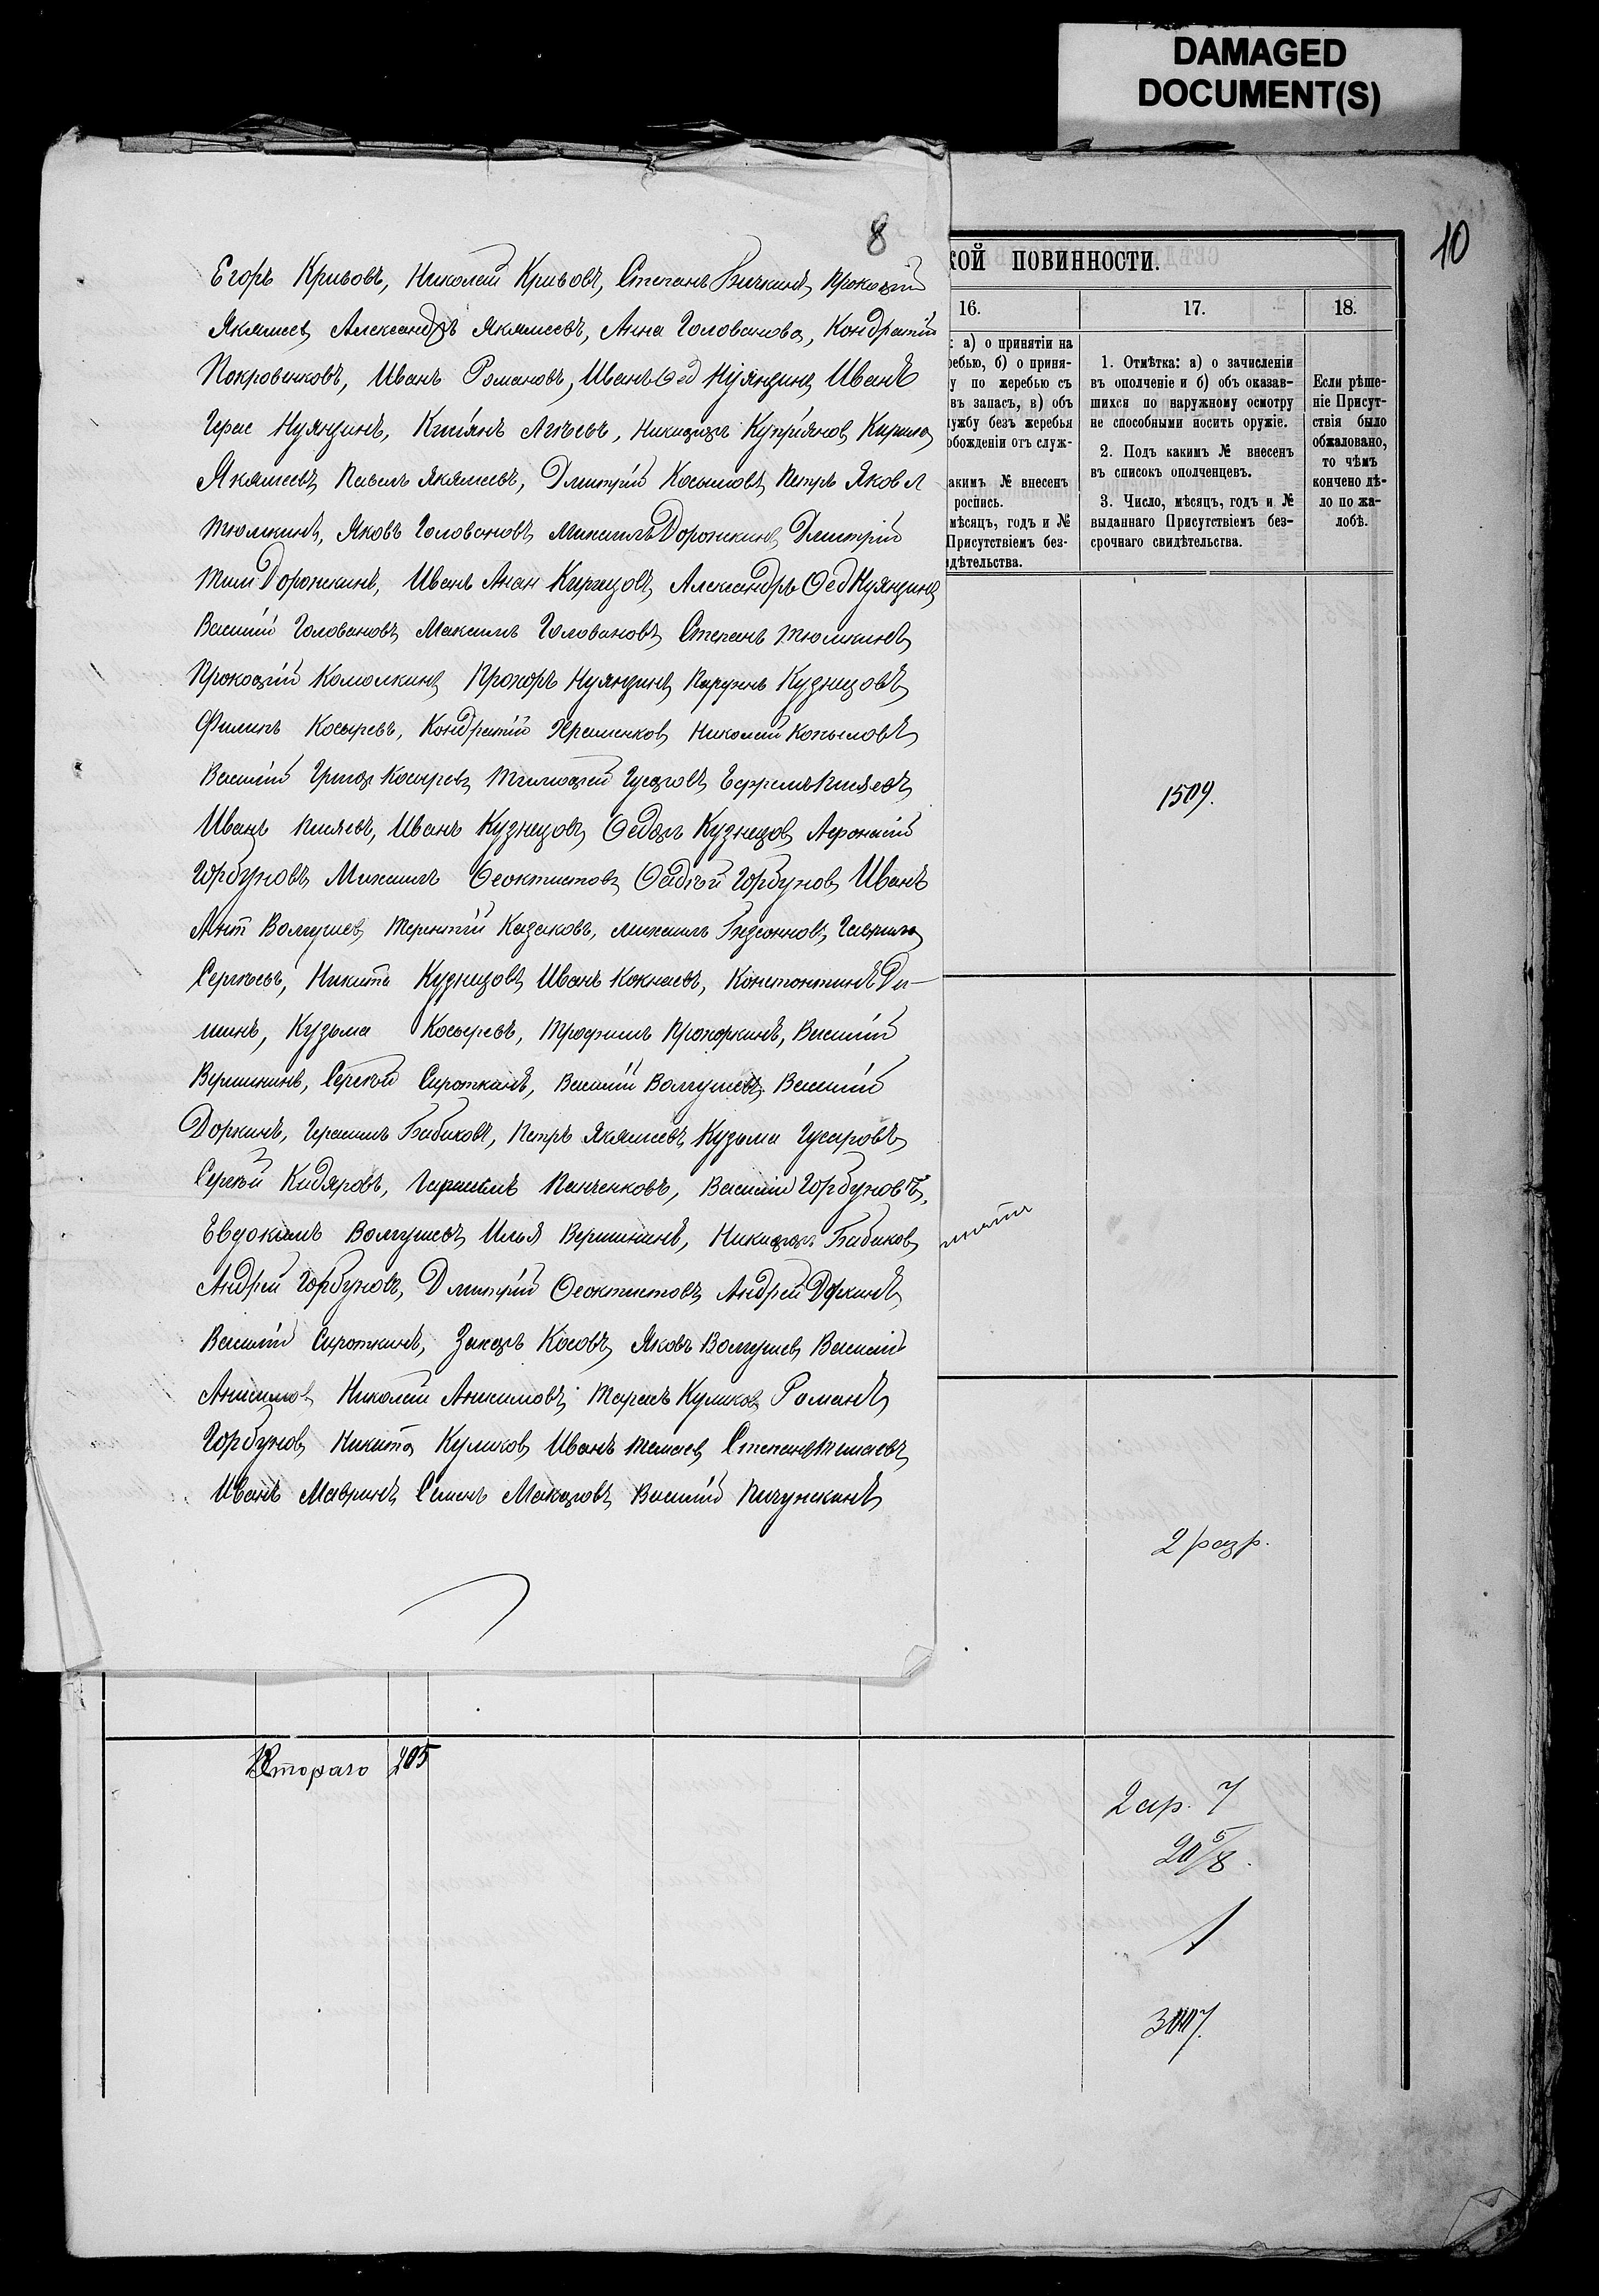 DAMAGED
DOCUMENT(S)
8
10
Егоръ Кривовъ, Николай Кривовъ, Степанъ Бичкинъ, Прокофій
Якямсевъ, Александръ Якямсевъ, Анна Голованова, Кондратій
Покровенковъ, Иванъ Романовъ, Иванъ Ѳед Нуянзинъ, Иванъ
Герас Нуянзинъ, Агѣевъ, Никифоръ Купріяновъ, Кирило
Якямсевъ, Павелъ Якямсевъ, Дмитрій Косымовъ, Петръ Яковл
Тюмкинъ, Яковъ Головановъ, Михаилъ Дорожкинъ, Дмитрій
Тим Дорожкинъ, Иванъ Киргизовъ, Александръ Ѳед Нуянзинъ,
Василій Головановъ, Максимъ Головановъ, Степанъ Тюмкинъ,
Прокофій Комолкинъ, Прохоръ Нуянзинъ, Кузнецовъ,
Филипъ Косыревъ, Кондратій Николай Копыловъ,
Василій Григор Косыревъ, Тимофей Гусаровъ, Ефремъ Пиляевъ,
Иванъ Пиляевъ, Иванъ Кузнецовъ, Ѳедоръ Кузнецовъ, Афонасій
Горбуновъ, Михаилъ Ѳеоктистовъ, Ѳадѣй Горбуновъ, Иванъ
Ант Волгушев, Терентій Казаковъ, Михаилъ Гаврила
Сергѣевъ, Никита Кузнецовъ, Иванъ Кокнаевъ, Константинъ Де-
минъ, Кузьма Косыревъ, Трофимъ Прохоркинъ, Василій
Вершининъ, Сергѣй Сироткинъ, Василій Волгушевъ, Василій
Доркинъ, Герасимъ Бабиковъ, Петръ Якямсевъ, Кузьма Гусаровъ,
Сергѣй Кидяровъ, Герасимъ Панченковъ, Василій Горбуновъ,
Евдокимъ Волгушевъ, Илья Вершининъ, Никифоръ Бабиковъ,
Андрей Горбуновъ, Дмитрій Ѳеоктистовъ, Андрей Доркинъ,
Василій Сироткинъ, Захаръ Косовъ, Яковъ Волгушев, Василій
Анисимовъ, Николай Анисимовъ, Тарасъ Куликовъ, Романъ
Горбуновъ, Никита Куликовъ, Иванъ Пемаев, Степанъ Пемаевъ,
Иванъ Мавринъ, Семенъ Макаровъ, Василій Пичужкинъ,
КОЙ ПОВИННОСТИ.
16.
: а) о принятіи на
ребью, б) о приня-
у по жеребью съ
въ запасъ, в) объ
ужбу безъ жеребья
обожденіи отъ служ-
акимъ № внесенъ
роспись.
мѣсяцъ, годъ и №
Присутствіемъ без-
дѣтельства.
17.
1. Отмѣтка: а) о зачисленіи
въ ополченіе и б) объ оказав-
шихся по наружному осмотру
не способными носить оружіе.
2. Подъ какимъ № внесенъ
въ списокъ ополченцевъ.
3. Число, мѣсяцъ, годъ и №
выданнаго Присутствіемъ без-
срочнаго свидѣтельства.
18.
Если рѣше-
ніе Присут-
ствія было
обжаловано,
то чѣмъ
кончено дѣ-
ло по жа-
лобѣ.
1509.
2 разр.
Втораго 205
2 ар. 7
20 5/8.
1
3007.